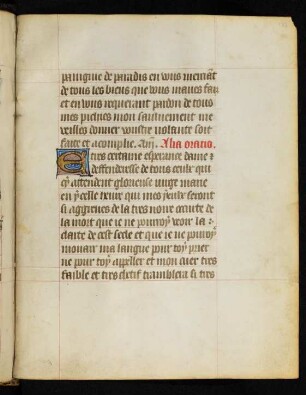 pangine de paradis en vous merciãt
de tous les biens que vous maues fais
et en vous requerant pardon de tous
mes pechies mon sauuement me
veilles donner vostre volante soit
faite et acomplie. Am̃. Alia oratio.
E tres certaine esperance dame ⁊
deffenderesse de tous ceulz qui
sy attendent glorieuse virge marie
en ycelle heure que mes yeulx seront
si aggreues de la tres noire oscurte de
la mort que ie ne pourroy veoir la
clarte de cest secle et que ie ne pourroy
mouuoir ma langue pour toy prier
ne pour toy appeller et mon cuer tres
faible et tres chetif tramblera si tres